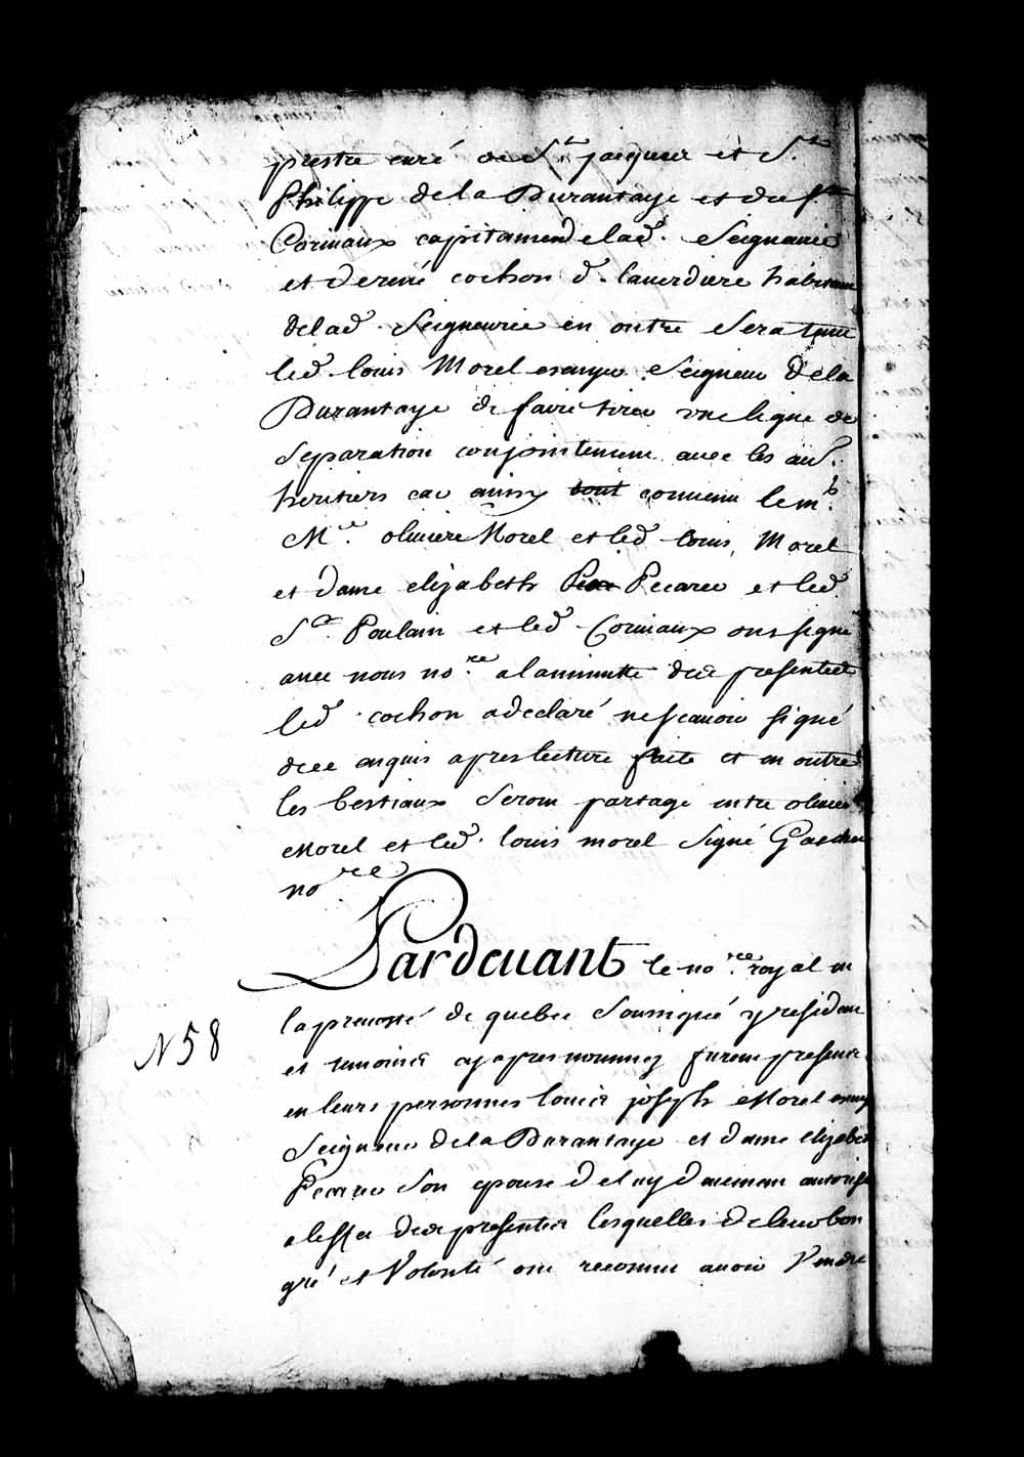 prestre curé de St jacques et St
Philippe dela Durantaye et du Sr
Cormaux capitainendelad. Seigneurie
et derené cochon d. lauerdiere habitant
delad. Seigneurie en outre sera tenu
led. louis Morel escuyer Seigneur dela
Durantaye de faire tirer vne ligne de
separation conjointement auec les aud.
heritiers car ainsy tout conuenu
Me. oliuiere Morel et led louis, Morel
et dame elizabeth Pecareu et led
Sr. Poulain et led Cormaux ont signé
auec nous nore. alaminutte des presentes
led. cochon adeclaré nescauoir signé
dece enquis apres lecture faite et en outre
les bestiaux seront partagé entre oliuier
Morel et led. louis morel signé Gaschet
nore
Pardeuant le nore. royal en
la preuosté de quebec soussigné y residant
et temoins cy apres nommez furent presents
en leurs personnes louis joseph Morel escuyer
Seigneur dela Durantaye et dame elizabeth
Pecareu son epouse deluy duement autorisé
aleffet des presentes lesquelles deleur bon
gré et Volonté ont reconnu auoir Vendu
N 58